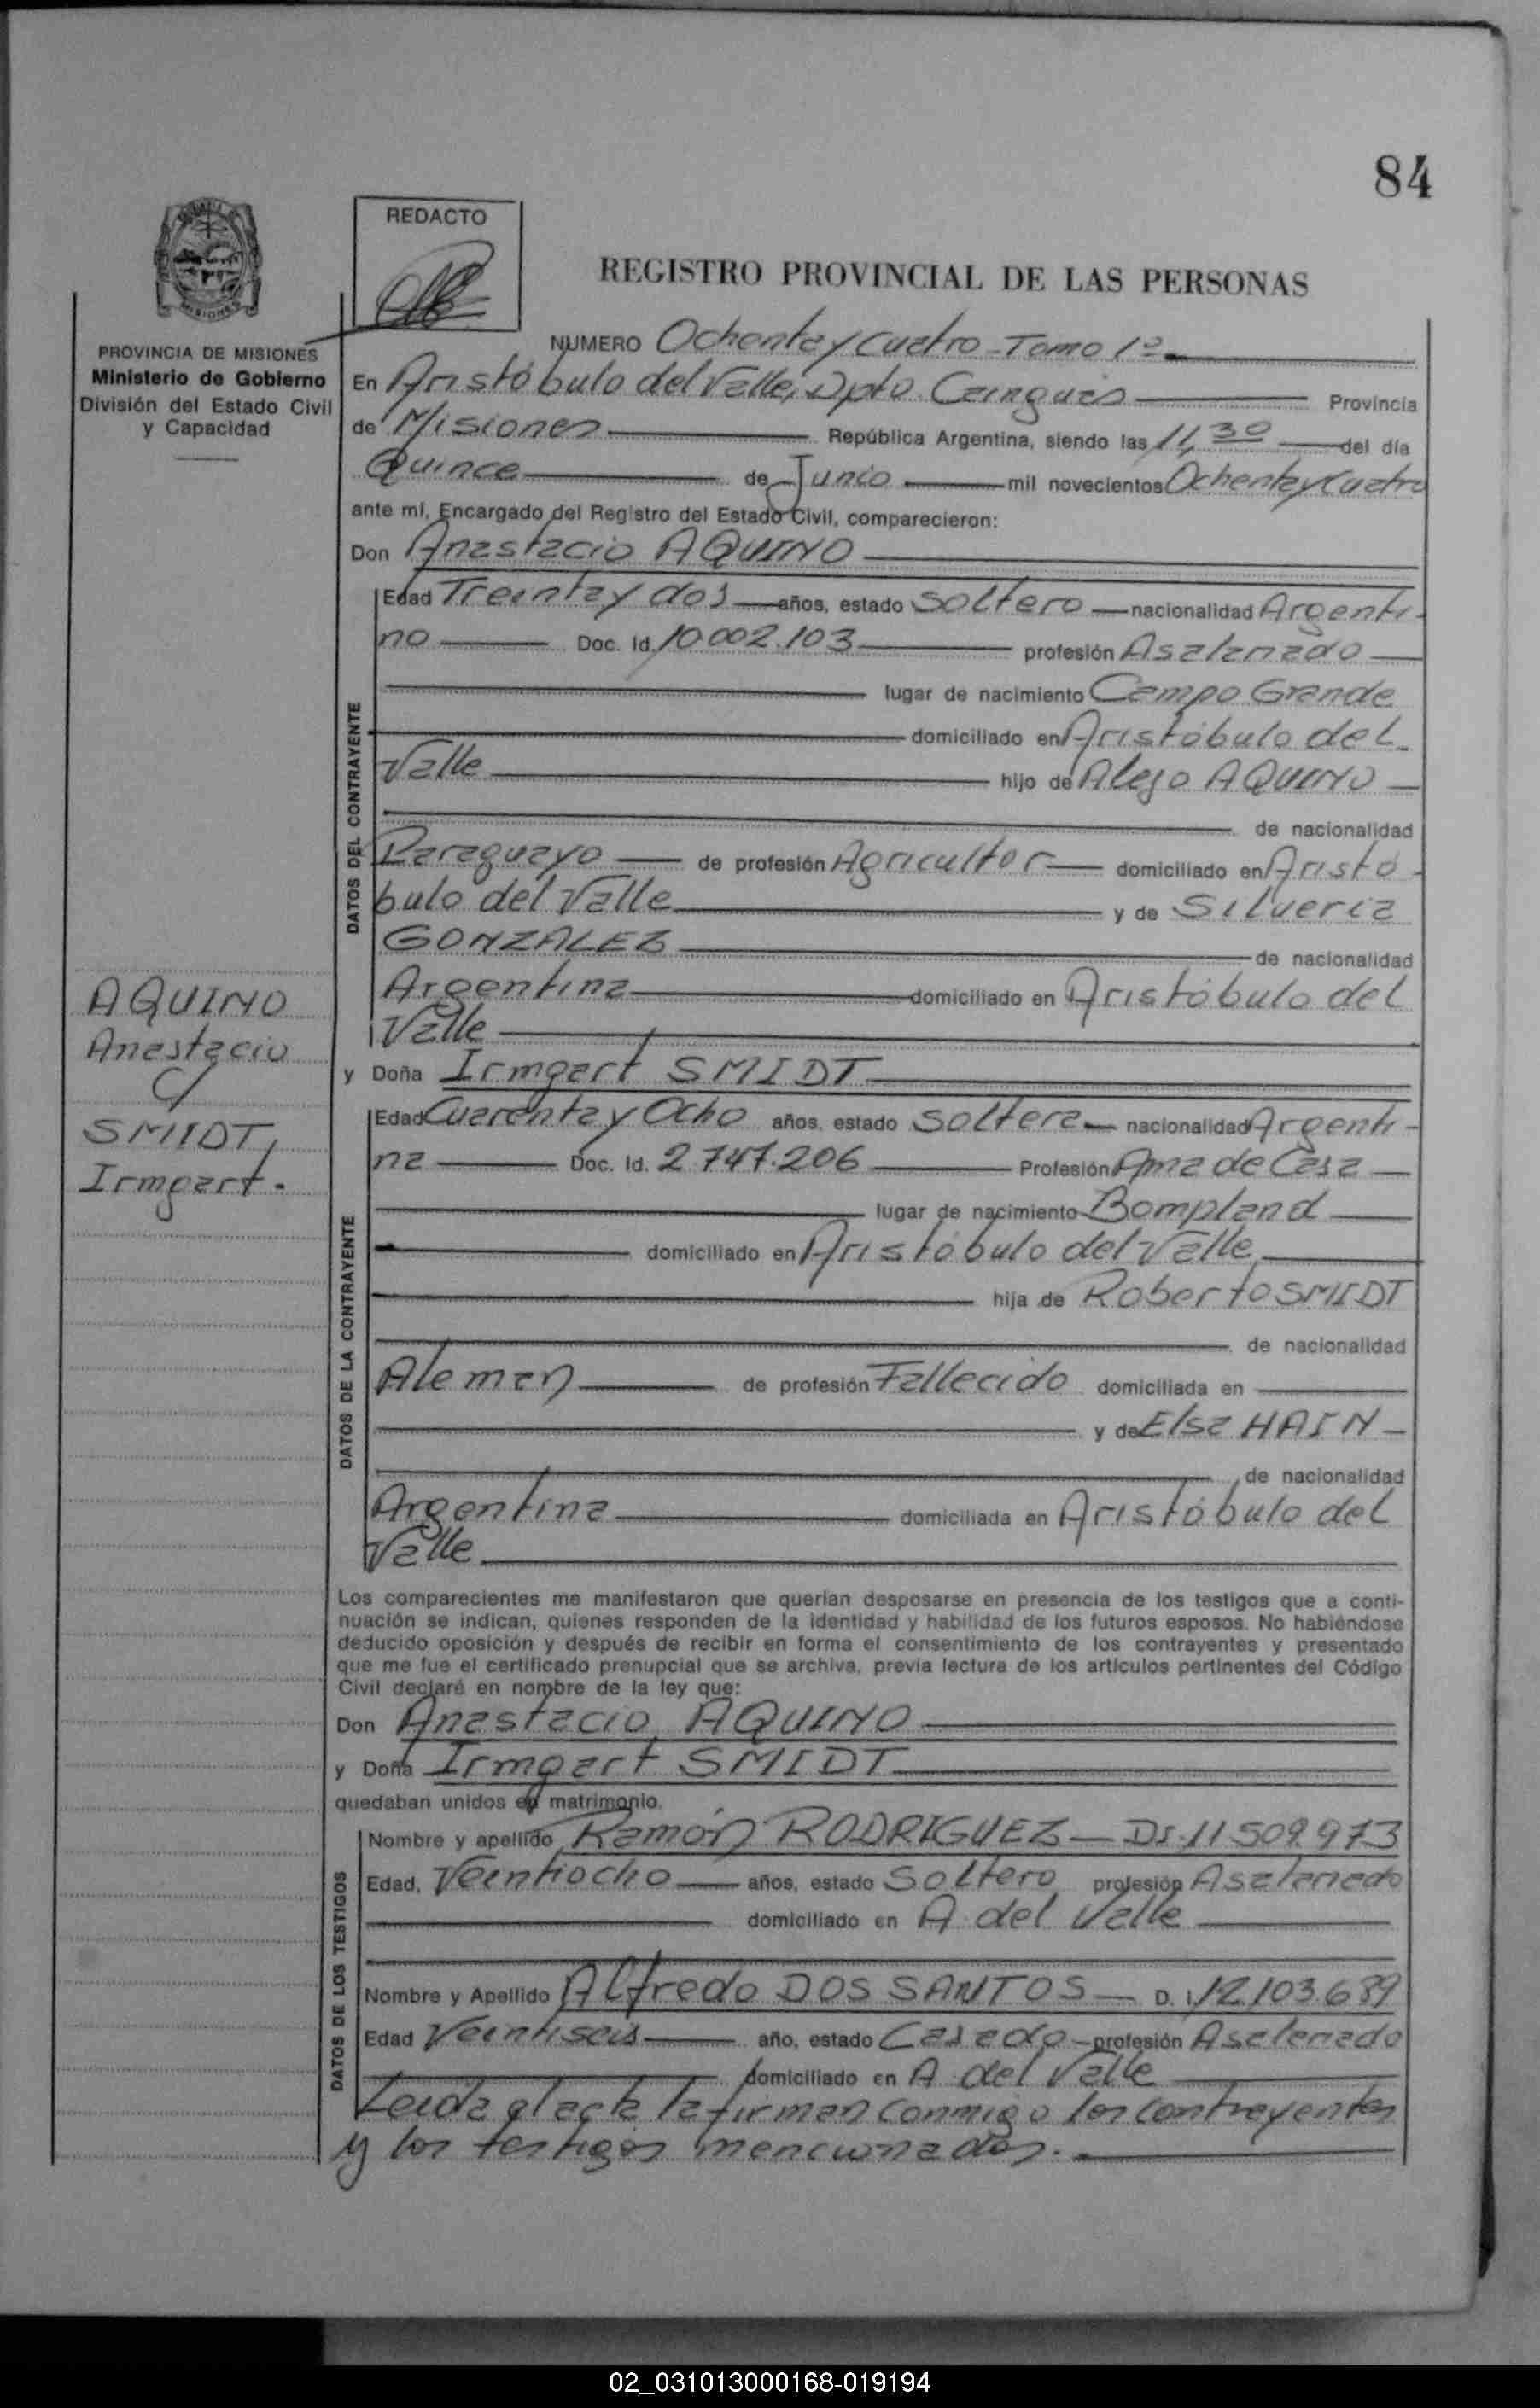 84
REDACTO
REGISTRO PROVINCIAL DE LAS PERSONAS
MISIONES
PROVINCIA DE MISIONES
Ministerio de Gobierno
División del Estado Civil
y Capacidad
NUMERO Ochenta y Cuatro - Tomo 1º
En Aristóbulo del Valle, Dpto. Cainguás Provincia
de Misiones República Argentina, siendo las 11,30 del día
Quince de Junio mil novecientos Ochenta y Cuatro
ante mí, Encargado del Registro del Estado Civil, comparecieron:
Don Anastacio AQUINO
DATOS DEL CONTRAYENTE
Edad Treinta y dos años, estado Soltero nacionalidad Argenti-
no Doc. Id. 10.002.103 profesión Asalariado
lugar de nacimiento Campo Grande
domiciliado en Aristóbulo del
Valle hijo de Alejo AQUINO
de nacionalidad
Paraguayo de profesión Agricultor domiciliado en Aristó-
bulo del Valle y de Silveria
GONZALEZ de nacionalidad
Argentina domiciliado en Aristóbulo del
Valle
AQUINO
Anastacio
c/
SMIDT,
Irmgart.
y Doña Irmgart SMIDT
DATOS DE LA CONTRAYENTE
Edad Cuarenta y Ocho años, estado Soltera nacionalidad Argenti-
na Doc. Id. 2.747.206 Profesión Ama de Casa
lugar de nacimiento Bompland
domiciliado en Aristóbulo del Valle
hija de Roberto SMIDT
de nacionalidad
Aleman de profesión Fallecido domiciliada en
y de Elsa HAIN
de nacionalidad
Argentina domiciliada en Aristóbulo del
Valle
Los comparecientes me manifestaron que querían desposarse en presencia de los testigos que a conti-
nuación se indican, quienes responden de la identidad y habilidad de los futuros esposos. No habiéndose
deducido oposición y después de recibir en forma el consentimiento de los contrayentes y presentado
que me fue el certificado prenupcial que se archiva, previa lectura de los artículos pertinentes del Código
Civil declaré en nombre de la ley que:
Don Anastacio AQUINO
y Doña Irmgart SMIDT
quedaban unidos en matrimonio.
DATOS DE LOS TESTIGOS
Nombre y apellido Ramón RODRIGUEZ - DI. 11 509 973
Edad, Veintiocho años, estado Soltero profesión Asalariado
domiciliado en A. del Valle
Nombre y Apellido Alfredo DOS SANTOS D. I. 12.103.689
Edad Veintiseis año, estado Casado profesión Asalariado
domiciliado en A. del Valle
Leída el acta la firman conmigo los contrayentes
y los testigos mencionados.
02_031013000168-019194